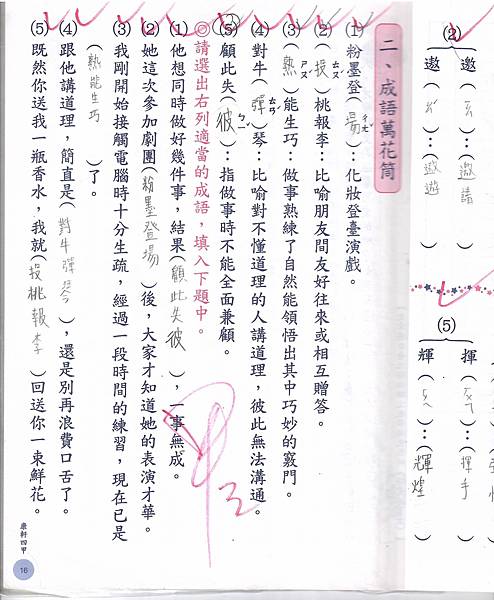 (2)
邀(ㄧㄠ):(邀請)
遨(ㄠˊ):(遨遊)
(5)
揮(ㄏㄨㄟ):(揮手)
輝(ㄏㄨㄟ):(輝煌)
二、成語萬花筒
(1)粉墨登(場):化妝登臺演戲。
(2)(投)桃報李:比喻朋友間友好往來或相互贈答。
(3)(熟)能生巧:做事熟練了自然能領悟出其中巧妙的竅門。
(4)對牛(彈)琴:比喻對不懂道理的人講道理,彼此無法溝通。
(5)顧此失(彼):指做事時不能全面兼顧。
◎請選出右列適當的成語,填入下題中。
(1)他想同時做好幾件事,結果(顧此失彼),一事無成。
(2)她這次參加劇團(粉墨登場)後,大家才知道她的表演才華。
(3)我剛開始接觸電腦時十分生疏,經過一段時間的練習,現在已是
(熟能生巧)了。
(4)跟他講道理,簡直是(對牛彈琴),還是別再浪費口舌了。
(5)既然你送我一瓶香水,我就(投桃報李)回送你一束鮮花。
康軒四甲
16